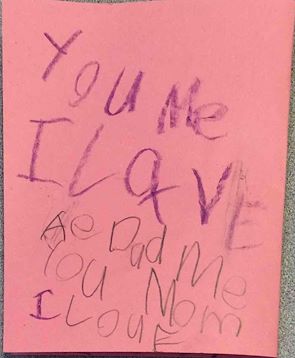 YOU Me
I LOVE
Ae Dad Me
YOU Mom
I LOUE